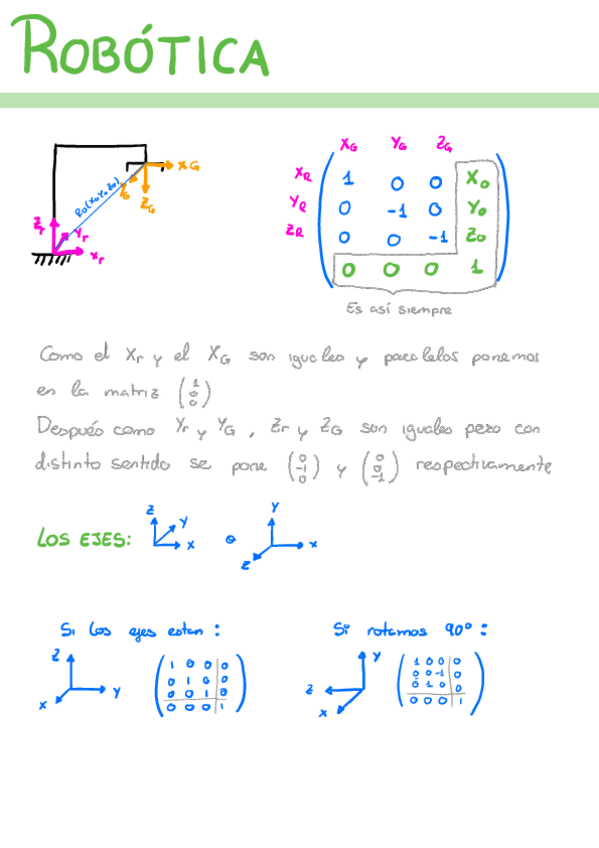 ROBÓTICA
XG YG ZG
XG
Po(Xo,Yo,Zo)
YG
ZG
Zr
Yr
Xr
XR 1 0 0 Xo
YR 0 -1 0 Yo
ZR 0 0 -1 Zo
0 0 0 1
Es así siempre
Como el Xr y el XG son iguales y paralelos ponemos
en la matriz (1 0 0)
Después como Yr y YG, Zr y ZG son iguales pero con
distinto sentido se pone (0 -1 0) y (0 0 -1) respectivamente
LOS EJES: Z Y X o Y X Z
Si los ejes estan: Si rotamos 90º:
Z Y X
1 0 0 0
0 1 0 0
0 0 1 0
0 0 0 1
Y Z X
1 0 0 0
0 0 -1 0
0 1 0 0
0 0 0 1